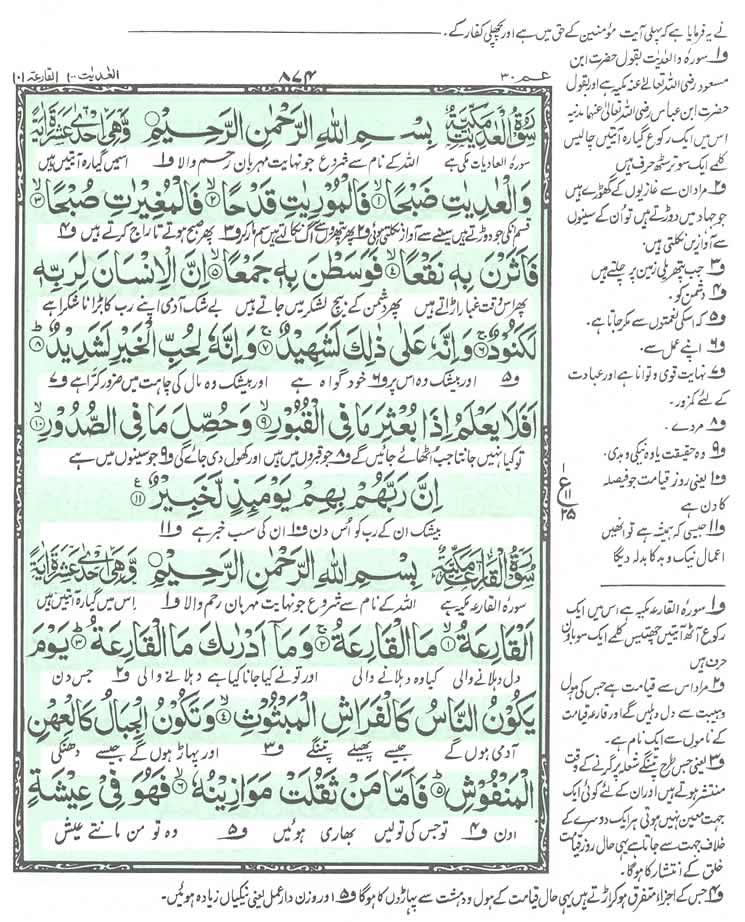 نے یہ فرمایا ہے کہ پہلی آیت مؤمنین کے حق میں ہے اور پچھلی کفار کے۔
عم ۳۰
۸۷۴
العٰدیٰت ۱۰۰ القارعۃ ۱۰۱
سُوْرَةُ الْعٰدِيٰتِ مَكِّيَّةٌ بِسْمِ اللهِ الرَّحْمٰنِ الرَّحِيْمِ وَّهِيَ اِحْدٰى عَشْرَةَ اٰيَةً
سورۂ العادیات مکی ہے اللہ کے نام سے شروع جو نہایت مہربان رحم والا ف۱ اسمیں گیارہ آیتیں ہیں
وَالْعٰدِيٰتِ ضَبْحًا ۙ۱ فَالْمُوْرِيٰتِ قَدْحًا ۙ۲ فَالْمُغِيْرٰتِ صُبْحًا ۙ۳
قسم انکی جو دوڑتے ہیں سینے سے آواز نکلتی ہوئی ف۲ پھر پتھروں سے آگ نکالتے ہیں سم مار کر ف۳ پھر صبح ہوتے تاراج کرتے ہیں ف۴
فَاَثَرْنَ بِهٖ نَقْعًا ۙ۴ فَوَسَطْنَ بِهٖ جَمْعًا ۙ۵ اِنَّ الْاِنْسَانَ لِرَبِّهٖ
پھر اس وقت غبار اڑاتے ہیں پھر دشمن کے بیچ لشکر میں جاتے ہیں بے شک آدمی اپنے رب کا بڑا ناشکرا ہے
لَكَنُوْدٌ ۚ۶ وَاِنَّهٗ عَلٰى ذٰلِكَ لَشَهِيْدٌ ۚ۷ وَاِنَّهٗ لِحُبِّ الْخَيْرِ لَشَدِيْدٌ ؕ۸
ف۵ اور بیشک وہ اس پر ف۶ خود گواہ ہے اور بیشک وہ مال کی چاہت میں ضرور کرّا ہے ف۷
اَفَلَا يَعْلَمُ اِذَا بُعْثِرَ مَا فِي الْقُبُوْرِ ۙ۹ وَحُصِّلَ مَا فِي الصُّدُوْرِ ۙ۱۰
تو کیا نہیں جانتا جب اٹھائے جائیں گے ف۸ جو قبروں میں ہیں اور کھول دی جائے گی ف۹ جو سینوں میں ہے
اِنَّ رَبَّهُمْ بِهِمْ يَوْمَئِذٍ لَّخَبِيْرٌ ۱۱
بیشک ان کے رب کو اُس دن ف۱۰ ان کی سب خبر ہے ف۱۱
سُوْرَةُ الْقَارِعَةِ مَكِّيَّةٌ بِسْمِ اللهِ الرَّحْمٰنِ الرَّحِيْمِ وَّهِيَ اِحْدٰى عَشْرَةَ اٰيَةً
سورۂ القارعہ مکیہ ہے اللہ کے نام سے شروع جو نہایت مہربان رحم والا ف۱ اس میں گیارہ آیتیں ہیں
اَلْقَارِعَةُ ۙ۱ مَا الْقَارِعَةُ ۚ۲ وَمَاۤ اَدْرٰىكَ مَا الْقَارِعَةُ ؕ۳ يَوْمَ
دل دہلانے والی کیا وہ دہلانے والی اور تو نے کیا جانا کیا ہے دہلانے والی ف۲ جس دن
يَكُوْنُ النَّاسُ كَالْفَرَاشِ الْمَبْثُوْثِ ۙ۴ وَتَكُوْنُ الْجِبَالُ كَالْعِهْنِ
آدمی ہوں گے جیسے پھیلے پتنگے ف۳ اور پہاڑ ہوں گے جیسے دھنکی
الْمَنْفُوْشِ ؕ۵ فَاَمَّا مَنْ ثَقُلَتْ مَوَازِيْنُهٗ ۙ۶ فَهُوَ فِيْ عِيْشَةٍ
اون ف۴ تو جس کی تولیں بھاری ہوئیں ف۵ وہ تو من مانتے عیش
ف۱ سورۂ والعدیت بقول حضرت ابن
مسعود رضی اللہ تعالیٰ عنہ مکیہ ہے اور بقول
حضرت ابن عباس رضی اللہ تعالیٰ عنہما مدنیہ
اس میں ایک رکوع گیارہ آیتیں چالیس
کلمے ایک سو ترسٹھ حرف ہیں
ف۲ مراد ان سے غازیوں کے گھوڑے ہیں
جو جہاد میں دوڑتے ہیں تو اُن کے سینوں
سے آوازیں نکلتی ہیں۔
ف۳ جب پتھریلی زمین پر چلتے ہیں
ف۴ دشمن کو۔
ف۵ کہ اسکی نعمتوں سے مکر جاتا ہے۔
ف۶ اپنے عمل سے۔
ف۷ نہایت قوی و توانا ہے اور عبادت
کے لئے کمزور۔
ف۸ مردے۔
ف۹ وہ حقیقت یا وہ نیکی و بدی۔
ف۱۰ یعنی روز قیامت جو فیصلہ
کا دن ہے
ف۱۱ جیسی کہ ہمیشہ ہے تو انھیں
اعمال نیک و بد کا بدلہ دیگا
۱
ع
۱۱
۲۵
ف۱ سورۃ القارعہ مکیہ ہے اس میں ایک
رکوع آٹھ آیتیں چھتیس کلمے ایک سو باون
حرف ہیں
ف۲ مراد اس سے قیامت ہے جس کی ہول
و ہیبت سے دل دہلیں گے اور قارعہ قیامت
کے ناموں سے ایک نام ہے۔
ف۳ یعنی جس طرح پتنگے شعلہ پر گرنے کے وقت
منتشر ہوتے ہیں اور ان کے لئے کوئی ایک
جہت معین نہیں ہوتی ہر ایک دوسرے کے
خلاف جہت سے جاتا ہے یہی حال روز قیامت
خلق کے انتشار کا ہوگا۔
ف۴ جس کے اجزاء متفرق ہو کر اڑتے ہیں یہی حال قیامت کے ہول و دہشت سے پہاڑوں کا ہوگا ف۵ اور وزن دار عمل یعنی نیکیاں زیادہ ہوئیں۔